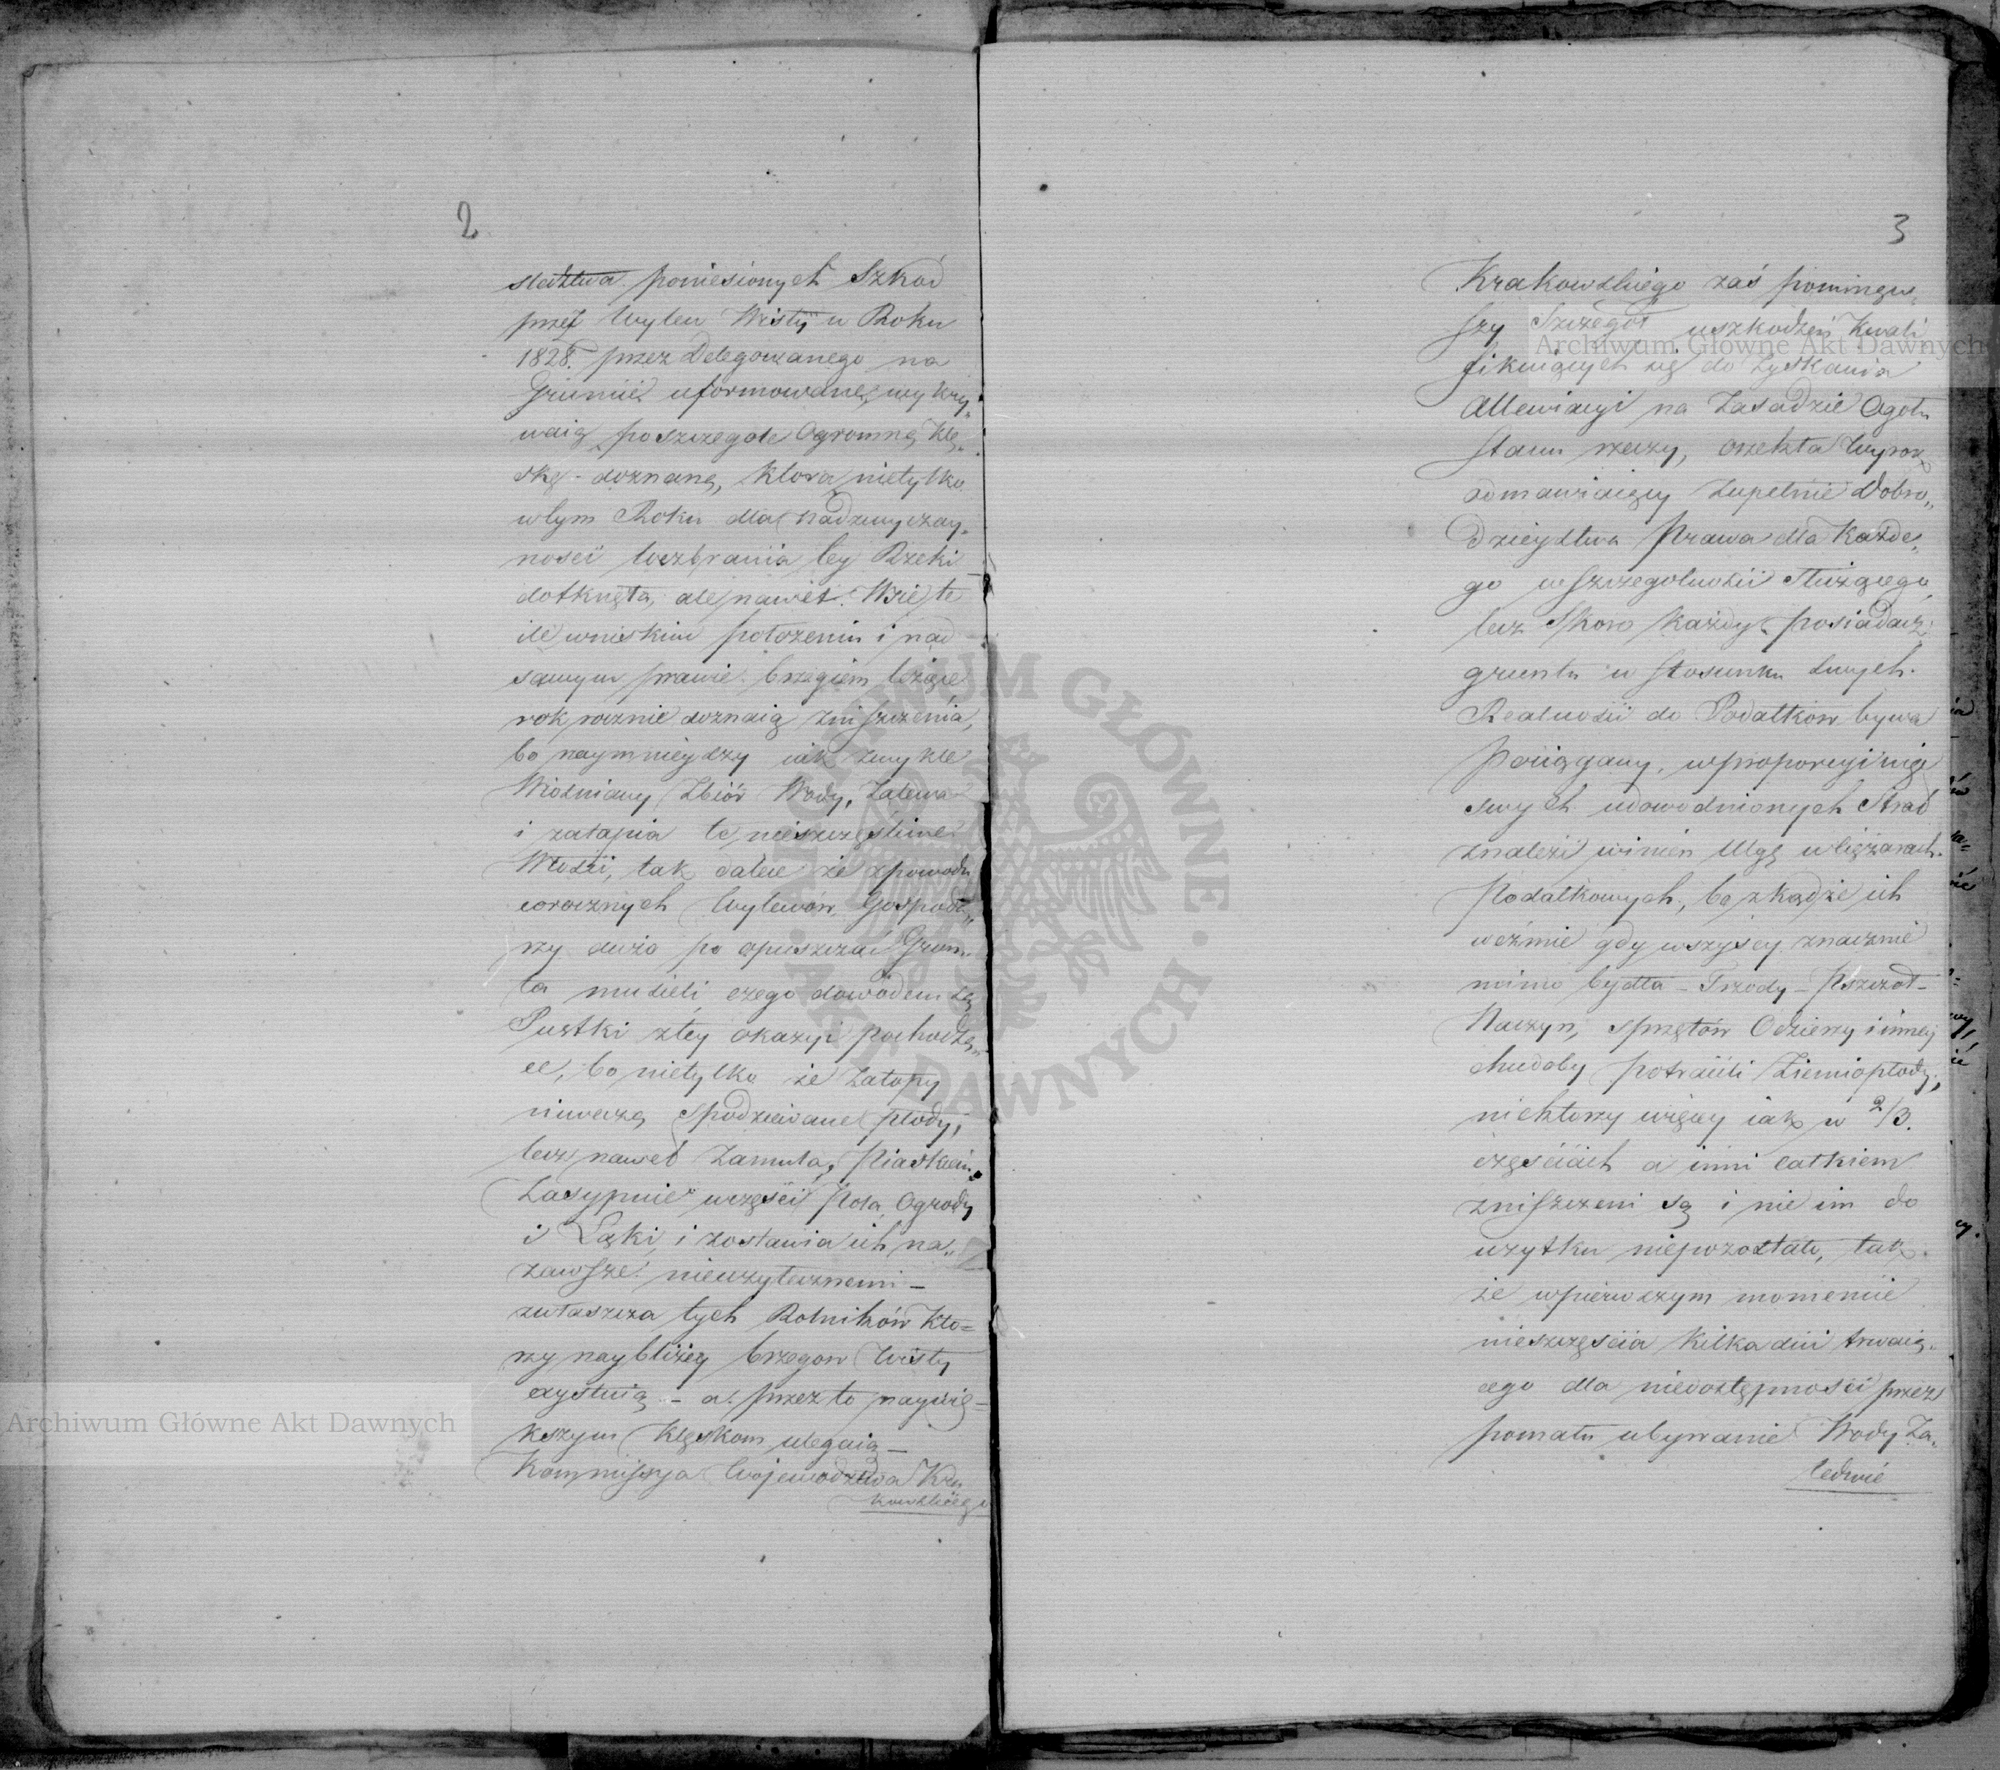 2
sledztwa poniesionych Szkód
przez wylew Wisły w Roku
1828. przez Delegowanego na
Gruncie uformowane, wykry„
waią poszczegole Ogromną Klę„
skę - doznaną, która nietylko
wtym Roku dla nadzwyczay„
ności wezbrania tey Rzeki
dotknęła, ale nawet Wsie te
ile wniskim położeniu i nad
samym prawie brzegiem leżące
rok rocznie doznaią zniszczenia,
bo naymnieyszy iak zwykle
Wiosniany Zbiór Wody, Zalewa
i zatapia te nieszczęśliwe
Włości, tak dalece że zpowodu
corocznych wylewów Gospoda„
rzy dużo po opuszczać Grun„
ta musieli, czego dowodem są
Pustki ztey okazyi pochodzą„
ce, bo nietylko że Zatopy
niweczą spodziewane płody,
lecz nawet Zamuła, Piaskiem
Zasypuie wczęści Pola, Ogrody
i Łąki, i zostawia ich na„
zawsze nieużytecznemi —
zwłaszcza tych Rolników Któ=
rzy naybliżey brzegow Wisły
exystuią — a przez to naywię=
kszym Klęskom ulegaią —
Kommissya Woiewodztwa Kra
kowskiego
3
Krakowskiego zaś pominąw„
szy Szczegół uszkodzeń Kwali„
fikuiących się do zyskania
Allewiacyi na Zasadzie Ogołu
stanu rzeczy, orzekła wyrok
odmawiaiący zupełnie Dobro„
dzieystwa Prawa dla Każde„
go wszczegolności Służącego,
lecz Skoro każdy posiadacz
gruntu w stosunku swych
Realności do Podatkow bywa
pociągany, wproporcyi więc
swych udowodnionych Strat
znaleźć winien Ulgę wciężarach
Podatkowych, bo zkądże ich
weźmie gdy wszyscy znacznie
mimo bydła — Trzody — Pszczoł —
Naczyń, sprzętów Odzieży i inney
chudoby potracili Ziemiopłody,
niektorzy więcey iak w 2/3.
częściach a inni całkiem
zniszczeni są i nic im do
użytku niepozostało, tak
że wpierwszym momencie
nieszczęścia Kilka dni trwaią„
cego dla niedostępności przez
pomału ubywanie Wody Za„
ledwie
Archiwum Główne Akt Dawnych
Archiwum Główne Akt Dawnych
ARCHIWUM GŁÓWNE AKT DAWNYCH